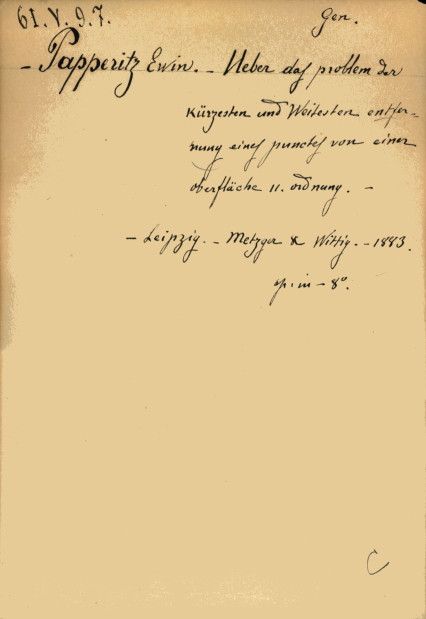 61.V.9.7.
Gen.
- Papperitz Erwin. - Ueber das problem der
kürzesten und Weitesten entfer-
nung eines punctes von einer
oberfläche II. ordnung. -
- Leipzig. - Metzger & Wittig. - 1883.
op. in - 8°.
C